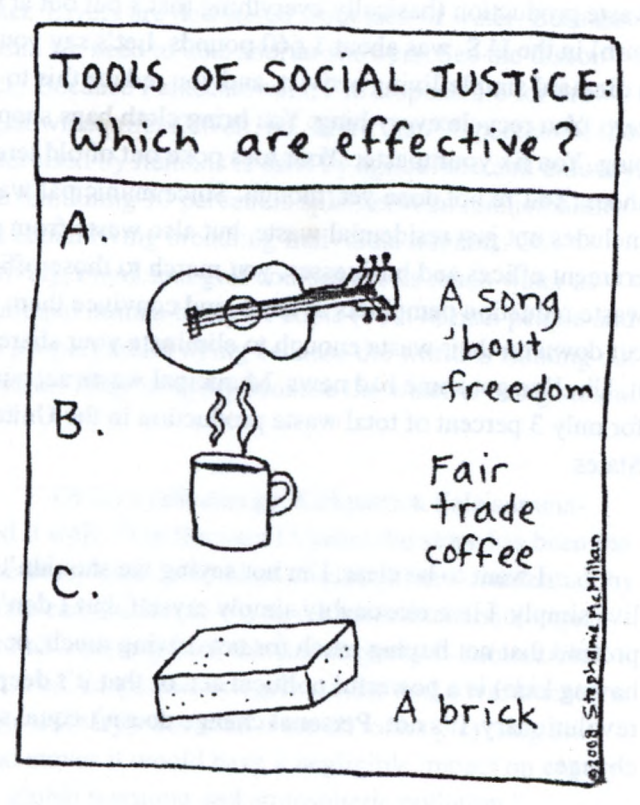 TOOLS OF SOCIAL JUSTICE:
Which are effective?
A.
A song
'bout
freedom
B.
Fair
trade
coffee
C.
A brick
©2008 Stephanie McMillan